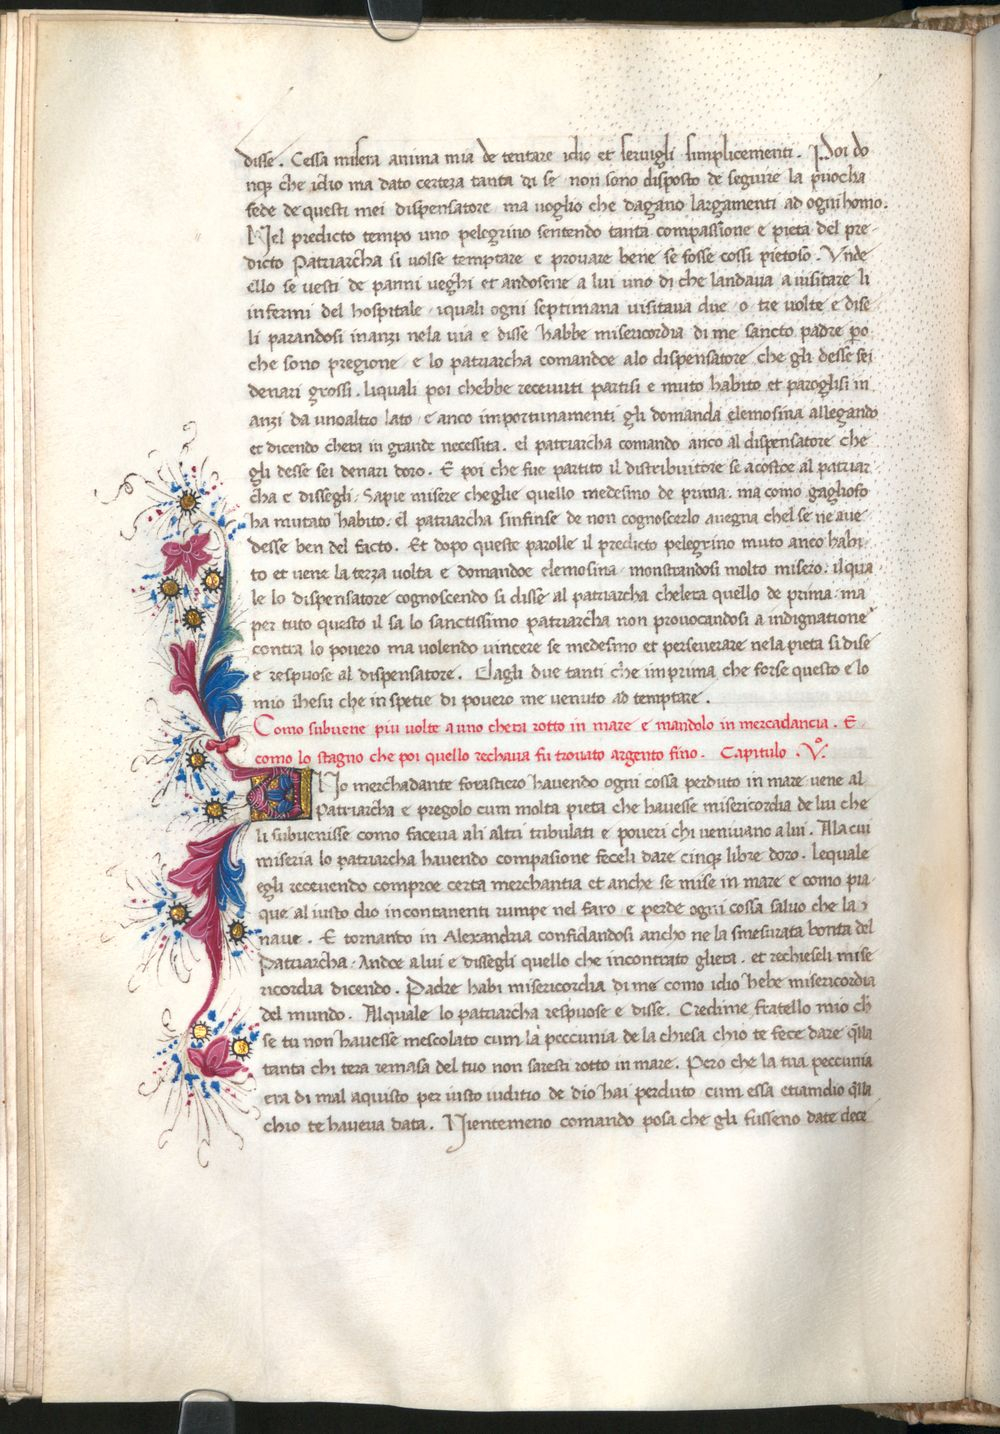 disse. Cessa misera anima mia de tentare idio et seruigli simplicementi. Poi do
nqꝫ che idio ma dato certeza tanta di se non sono disposto de seguire la puocha
fede de questi mei dispensatore ma uoglio che dagano largamenti ad ogni homo.
Nel predicto tempo uno pelegrino sentendo tanta compassione e pieta del pre-
dicto Patriarcha si uolse temptare e prouare bene se fosse cossi pietoso. Vnde
ello se uesti de panni ueghi et andosene a lui uno di che landaua a uisitare li
infermi del hospitale iquali ogni septimana uisitaua due o tre uolte e dise
li parandosi inanzi nela uia e disse habbe misericordia di me sancto padre ꝑo
che sono pregione e lo patriarcha comandoe alo dispensatore che gli desse sei
denari grossi. liquali poi chebbe receuuti partisi e muto habito et paroglisi in
anzi da unoaltro lato e anco importunamenti gli domanda elemosina allegando
et dicendo chera in grande necessita. el patriarcha comando anco al dispensatore che
gli desse sei denari doro. E poi che fue partito il distribuitore se acostoe al patriar
cha e dissegli. Sapie misere cheglie quello medesmo de prima. ma como gagliofo
ha mutato habito. el patriarcha sinfinse de non cognoscerlo auegna chel se ne aue
desse ben del facto. Et dopo queste parolle il predicto pelegrino muto anco habi-
to et uene la terza uolta e domandoe elemosina monstrandosi molto misero. ilqua
le lo dispensatore cognoscendo si disse al patriarcha chelera quello de prima. ma
per tuto questo il sa lo sanctissimo patriarcha non prouocandosi a indignatione
contra lo pouero ma uolendo uincere se medesmo et perseuerare nela pieta si dise
e respuose al dispensatore. Dagli due tanti che imprima che forse questo e lo
mio ihesu che in spetie di pouero me uenuto ad temptare.
Como subuene piu uolte a uno chera rotto in mare e mandolo in mercadancia. E
como lo stagno che poi quello rechaua fu trouato argento fino. Capitulo .V°.
VNo merchadante forastiero hauendo ogni cossa perduto in mare uene al
Patriarcha e pregolo cum molta pieta che hauesse misericordia de lui che
li subuenisse como faceua ali altri tribulati e poueri chi ueniuano a lui. Ala cui
miseria lo patriarcha hauendo compasione feceli dare cinqꝫ libre doro. lequale
egli receuendo comproe certa merchantia et anche se mise in mare e como pia-
que al iusto dio incontanenti rumpe nel faro e perde ogni cossa saluo che la
naue. E tornanto in Alexandria confidandosi ancho ne la smesurata bonta del
Patriarcha. Andoe a lui e dissegli quello che incontrato gliera. et rechieseli mise
ricordia dicendo. Padre habi misericordia di me como idio hebe misericordia
del mundo. Alquale lo patriarcha respuose e disse. Credime fratello mio ch̄
se tu non hauesse mescolato cum la peccunia de la chiesa chio te fece dare q̄lla
tanta chi tera remasa del tuo non saresti rotto in mare. Pero che la tua peccunia
era di mal aquisto per iusto iuditio de dio hai perduto cum essa etiamdio q̄lla
chio te haueua data. Nientemeno comando posa che gli fusseno date dece